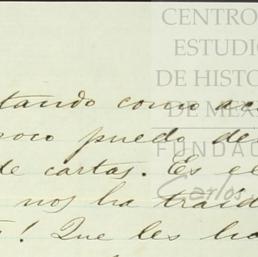 CENTRO
ESTUDIO
DE HISTO
DE MÉ
FUNDAC
Carlos
tando como ac
poco puedo de
de cartas. Es el
nos ha traíd
! Que les ha